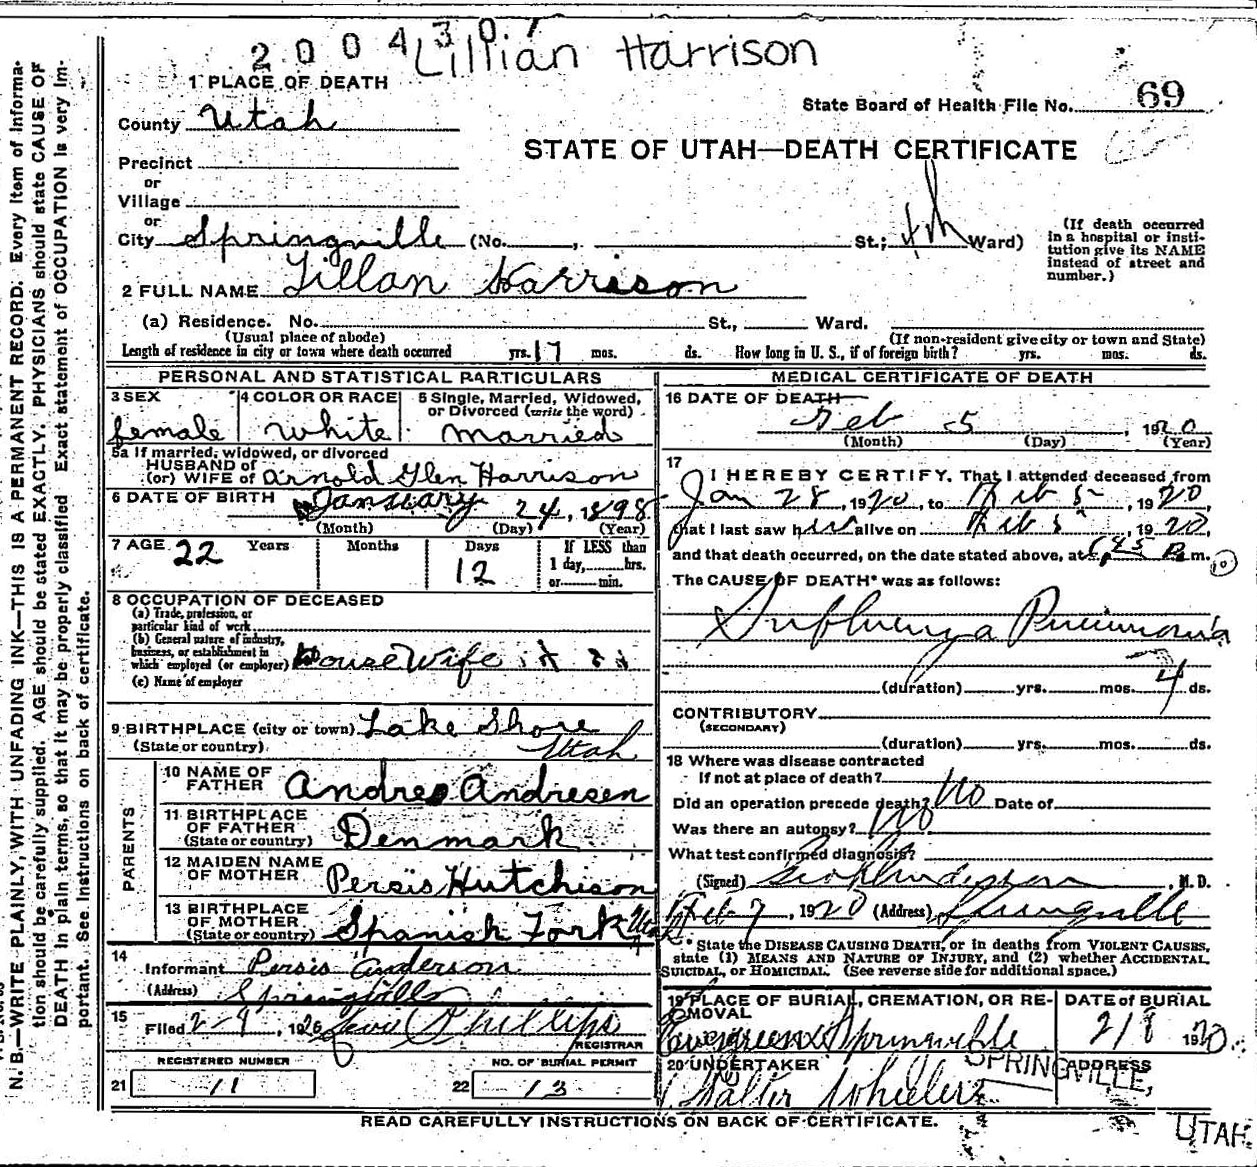 2004307
Lillian Harrison
1 PLACE OF DEATH
State Board of Health File No. 69
County Utah
STATE OF UTAH—DEATH CERTIFICATE
Precinct
or
Village
or
City Springville (No. , St.; 4th Ward)
(If death occurred in a hospital or insti-
tution give its NAME
instead of street and
number.)
2 FULL NAME Lillan Harrison
(a) Residence. No. St., Ward.
(Usual place of abode) (If non-resident give city or town and State)
Length of residence in city or town where death occurred yrs. 17 mos. ds. How long in U. S., if of foreign birth? yrs. mos. ds.
PERSONAL AND STATISTICAL PARTICULARS
3 SEX 4 COLOR OR RACE 5 Single, Married, Widowed,
or Divorced (write the word)
female white married
5a If married, widowed, or divorced
HUSBAND of
(or) WIFE of Arnold Glen Harrison
6 DATE OF BIRTH January 24, 1898
(Month) (Day) (Year)
7 AGE 22 Years Months Days 12 If LESS than
1 day, hrs.
or min.
8 OCCUPATION OF DECEASED
(a) Trade, profession, or
particular kind of work
(b) General nature of industry,
business, or establishment in
which employed (or employer) House Wife
(c) Name of employer
9 BIRTHPLACE (city or town) Lake Shore
(State or country) Utah
PARENTS
10 NAME OF
FATHER Andres Andresen
11 BIRTHPLACE
OF FATHER
(State or country) Denmark
12 MAIDEN NAME
OF MOTHER Persis Hutchison
13 BIRTHPLACE
OF MOTHER
(State or country) Spanish Fork Utah
14 Informant Persis Anderson
(Address) Springville
15 Filed 2-9, 1920 Levi Phillips
REGISTRAR
REGISTERED NUMBER NO. OF BURIAL PERMIT
21 11 22 13
MEDICAL CERTIFICATE OF DEATH
16 DATE OF DEATH
Feb 5, 1920
(Month) (Day) (Year)
17
I HEREBY CERTIFY, That I attended deceased from
Jan 28, 1920, to Feb 5, 1920
that I last saw her alive on Feb 5, 1920,
and that death occurred, on the date stated above, at P. m.
The CAUSE OF DEATH* was as follows:
Influenza Pneumonia
(duration) yrs. mos. 4 ds.
CONTRIBUTORY
(SECONDARY)
(duration) yrs. mos. ds.
18 Where was disease contracted
If not at place of death?
Did an operation precede death? No Date of
Was there an autopsy? No
What test confirmed diagnosis?
(Signed) Geo Anderson, M. D.
Feb 7, 1920 (Address) Springville
* State the DISEASE CAUSING DEATH, or in deaths from VIOLENT CAUSES,
state (1) MEANS AND NATURE OF INJURY, and (2) whether ACCIDENTAL,
SUICIDAL, or HOMICIDAL. (See reverse side for additional space.)
19 PLACE OF BURIAL, CREMATION, OR RE-
MOVAL DATE of BURIAL
Evergreen Springville 2/8 1920.
20 UNDERTAKER ADDRESS
Walter Wheeler
SPRINGVILLE,
UTAH.
READ CAREFULLY INSTRUCTIONS ON BACK OF CERTIFICATE.
N. B.—WRITE PLAINLY, WITH UNFADING INK—THIS IS A PERMANENT RECORD. Every item of informa-
tion should be carefully supplied. AGE should be stated EXACTLY. PHYSICIANS should state CAUSE OF
DEATH in plain terms, so that it may be properly classified. Exact statement of OCCUPATION is very im-
portant. See instructions on back of certificate.